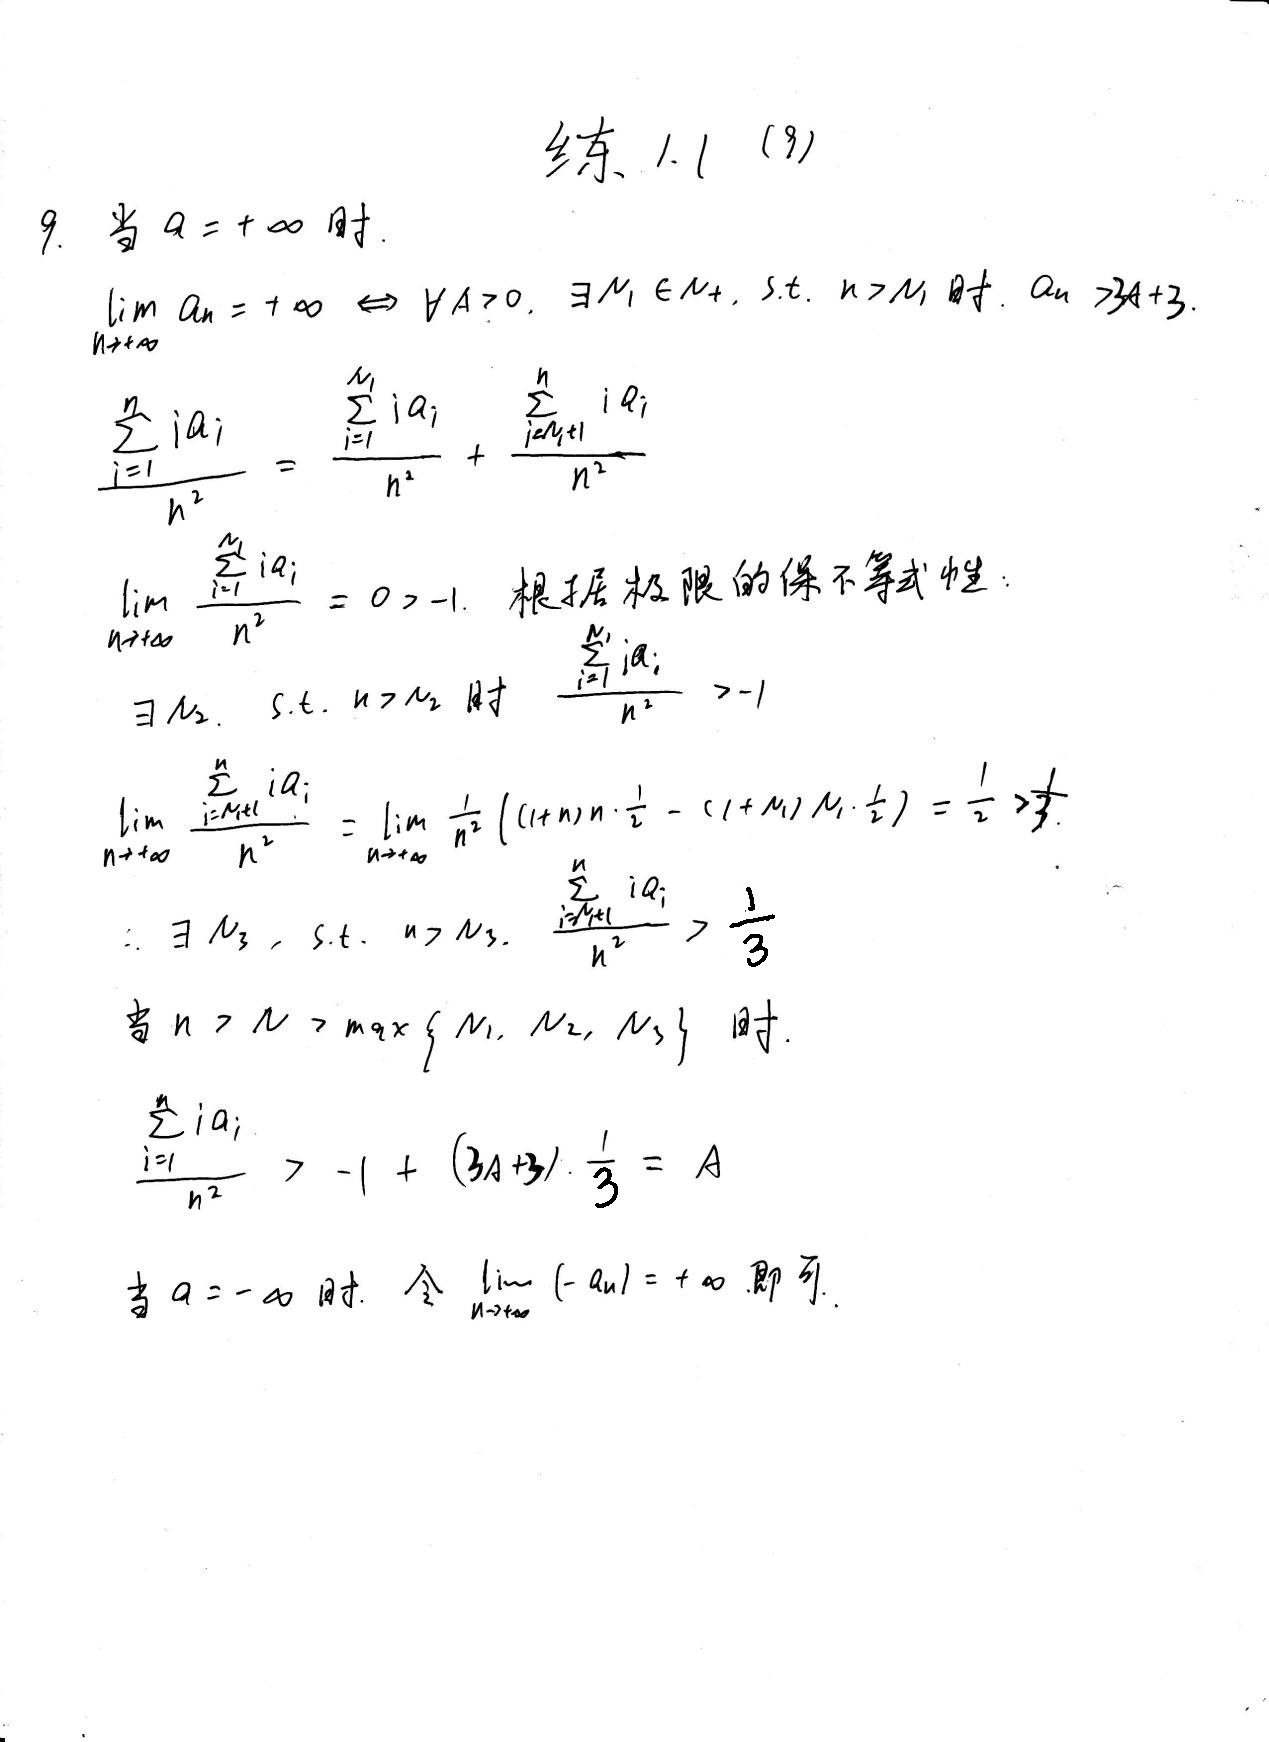 练 1.1 (9)
9. 当 a = +∞ 时.
lim_{n→+∞} a_n = +∞ ⇔ ∀A>0. ∃N_1 ∈ N_+, s.t. n>N_1 时. a_n >3A+3.
\frac{\sum_{i=1}^{n} i a_i}{n^2} = \frac{\sum_{i=1}^{N_1} i a_i}{n^2} + \frac{\sum_{i=N_1+1}^{n} i a_i}{n^2}
lim_{n→+∞} \frac{\sum_{i=1}^{N_1} i a_i}{n^2} = 0 > -1. 根据极限的保不等式性:
∃N_2. s.t. n>N_2 时 \frac{\sum_{i=1}^{N_1} i a_i}{n^2} > -1
lim_{n→+∞} \frac{\sum_{i=N_1+1}^{n} i a_i}{n^2} = lim_{n→+∞} \frac{1}{n^2} ((1+n)n·\frac{1}{2} - (1+N_1)N_1·\frac{1}{2}) = \frac{1}{2} > \frac{1}{3}.
∴ ∃N_3, s.t. n>N_3. \frac{\sum_{i=N_1+1}^{n} i a_i}{n^2} > \frac{1}{3}
当 n > N > max{N_1, N_2, N_3} 时.
\frac{\sum_{i=1}^{n} i a_i}{n^2} > -1 + (3A+3)·\frac{1}{3} = A
当 a = -∞ 时. 令 lim_{n→+∞} (-a_n) = +∞ 即可.